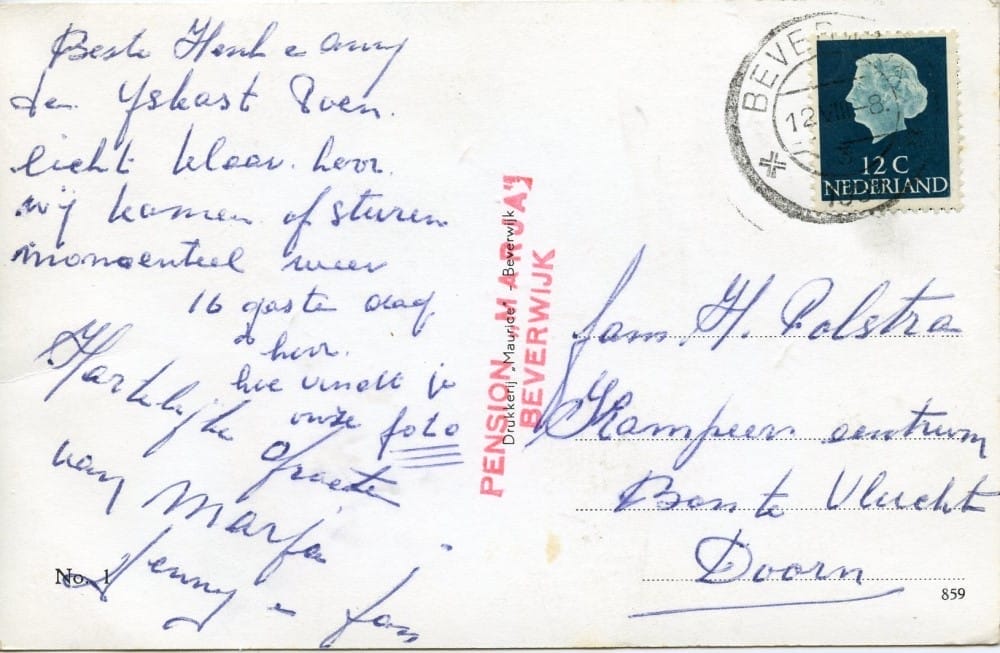 Beste Henk e Anny
de Yskast Poen
licht klaar. hoor.
wij komen of sturen
momenteel weer
16 gaste dag
hoor.
hoe vindt je
onze foto
Hartelijke
Groete
van Marja
Jenny e fam
No. 1
PENSION „MARJA"
BEVERWIJK
Drukkerij „Maurice" - Beverwijk
BEVER
12 VIII -8.
12 C
NEDERLAND
fam. H. Polstra
Kampeer centrum
Bonte Vlucht
Doorn
859